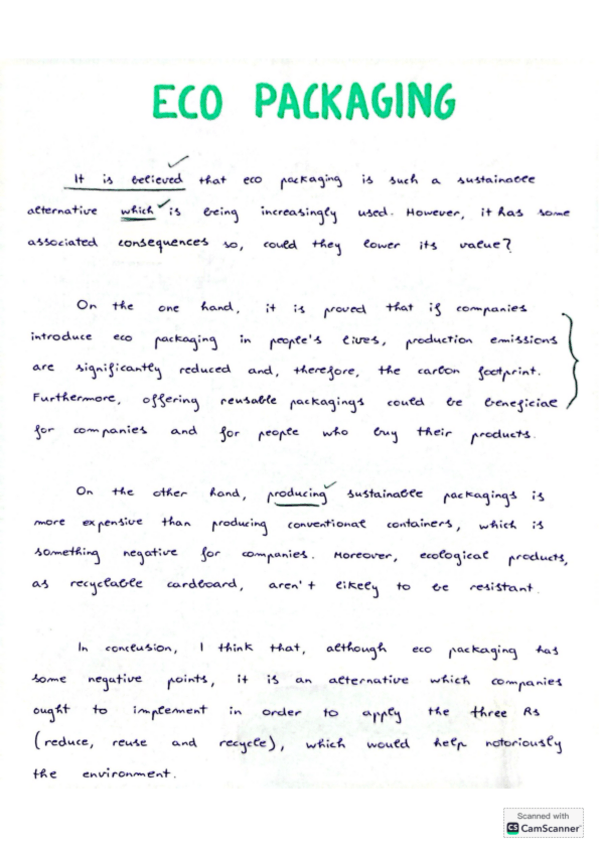 ECO PACKAGING
It is believed that eco packaging is such a sustainable
alternative which is being increasingly used. However, it has some
associated consequences so, could they lower its value?
On the one hand, it is proved that if companies
introduce eco packaging in people's lives, production emissions
are significantly reduced and, therefore, the carbon footprint.
Furthermore, offering reusable packagings could be beneficial
for companies and for people who buy their products.
On the other hand, producing sustainable packagings is
more expensive than producing conventional containers, which is
something negative for companies. Moreover, ecological products,
as recyclable cardboard, aren't likely to be resistant.
In conclusion, I think that, although eco packaging has
some negative points, it is an alternative which companies
ought to implement in order to apply the three Rs
(reduce, reuse and recycle), which would help notoriously
the environment.
Scanned with
CS CamScanner